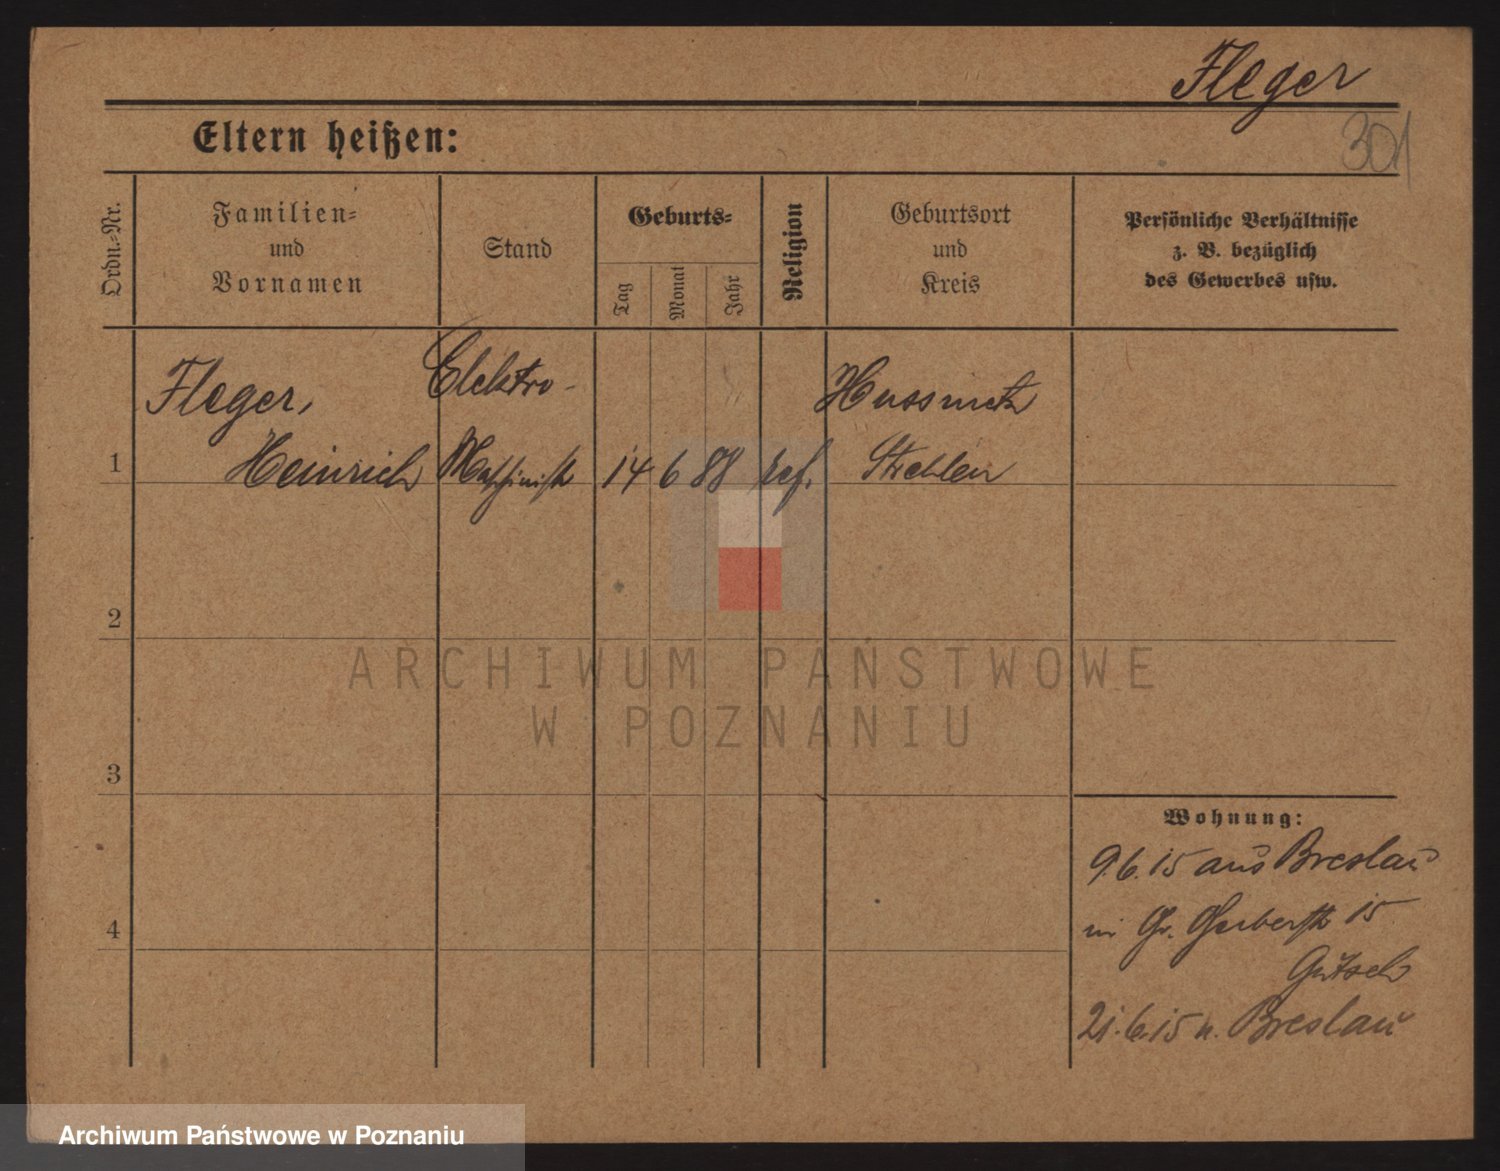 Fleger
301
Eltern heißen:
Ordn.-Nr.
Familien-
und
Vornamen
Stand
Geburts-
Tag
Monat
Jahr
Religion
Geburtsort
und
Kreis
Persönliche Verhältnisse
z. B. bezüglich
des Gewerbes usw.
Fleger, Elektro- Hussinetz
1 Heinrich Maschinist 14 6 88 ref. Strehlen
2
ARCHIWUM PAŃSTWOWE
W POZNANIU
3
Wohnung:
9.6.15 aus Breslau
in Gr. Gerberstr 15
4
Gutsch
21.6.15 n. Breslau
Archiwum Państwowe w Poznaniu